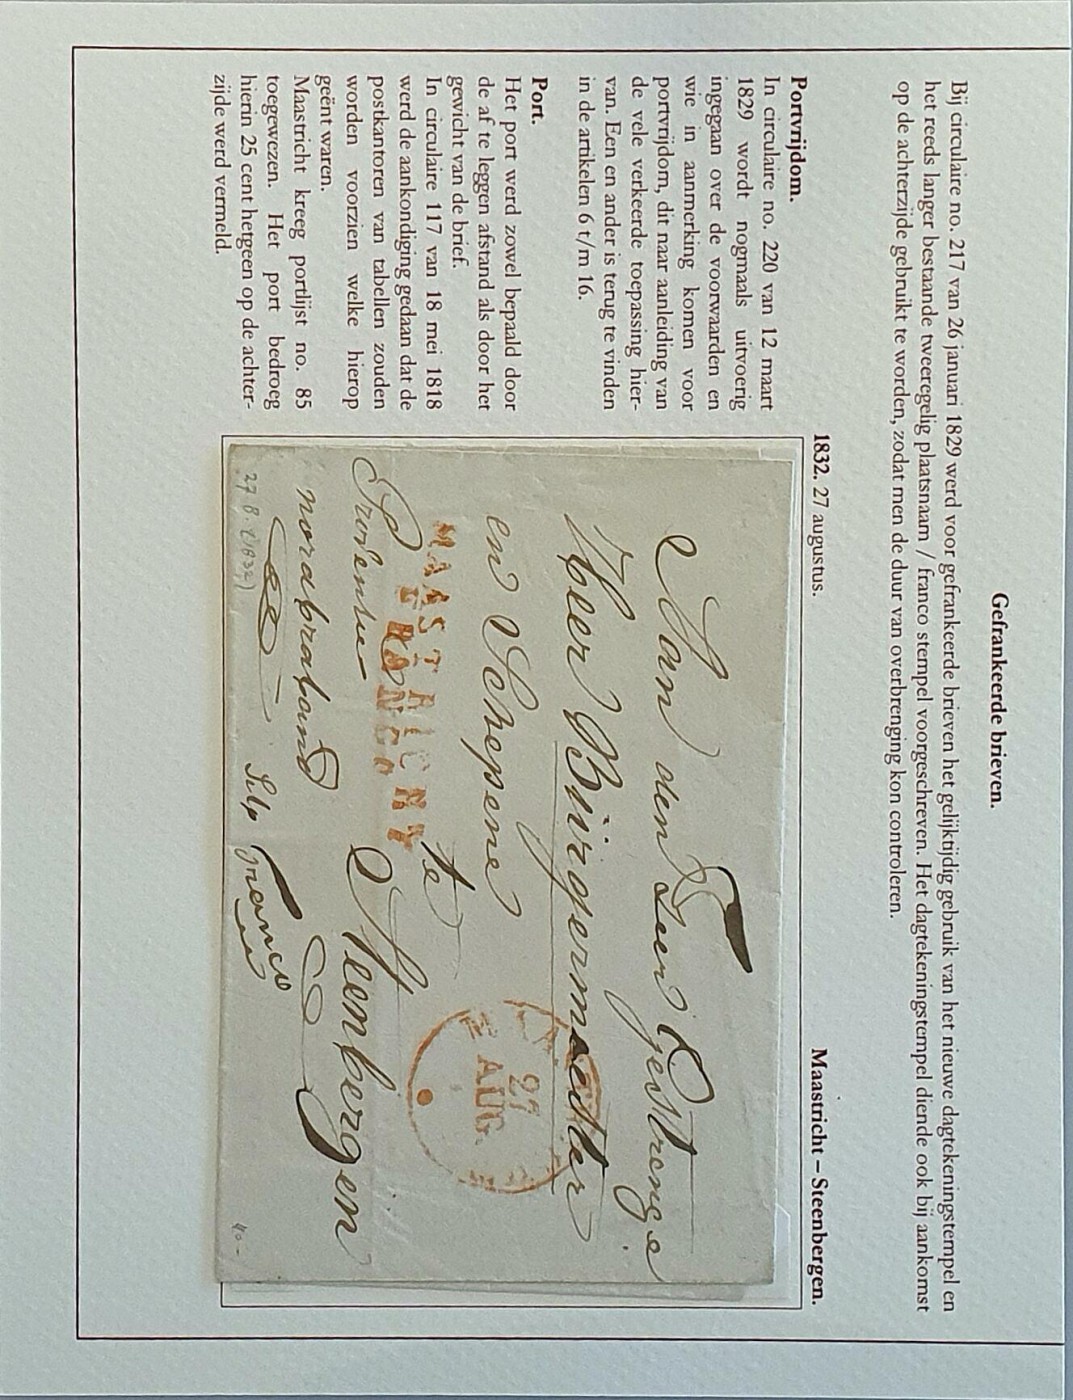 Gefrankeerde brieven.
Bij circulaire no. 217 van 26 januari 1829 werd voor gefrankeerde brieven het gelijktijdig gebruik van het nieuwe dagtekeningstempel en
het reeds langer bestaande tweeregelig plaatsnaam / franco stempel voorgeschreven. Het dagtekeningstempel diende ook bij aankomst
op de achterzijde gebruikt te worden, zodat men de duur van overbrenging kon controleren.
1832. 27 augustus.
Maastricht – Steenbergen.
Portvrijdom.
In circulaire no. 220 van 12 maart
1829 wordt nogmaals uitvoerig
ingegaan over de voorwaarden en
wie in aanmerking komen voor
portvrijdom, dit naar aanleiding van
de vele verkeerde toepassing hier-
van. Een en ander is terug te vinden
in de artikelen 6 t/m 16.
Port.
Het port werd zowel bepaald door
de af te leggen afstand als door het
gewicht van de brief.
In circulaire 117 van 18 mei 1818
werd de aankondiging gedaan dat de
postkantoren van tabellen zouden
worden voorzien welke hierop
geënt waren.
Maastricht kreeg portlijst no. 85
toegewezen. Het port bedroeg
hierin 25 cent hetgeen op de achter-
zijde werd vermeld.
Aan den Heer
Heer Bürgermeester
en Schepene
MAASTRICHT
FRANCO
te Steenbergen
27
AUG
nordbraband
franco
27 8 (1832)
40-